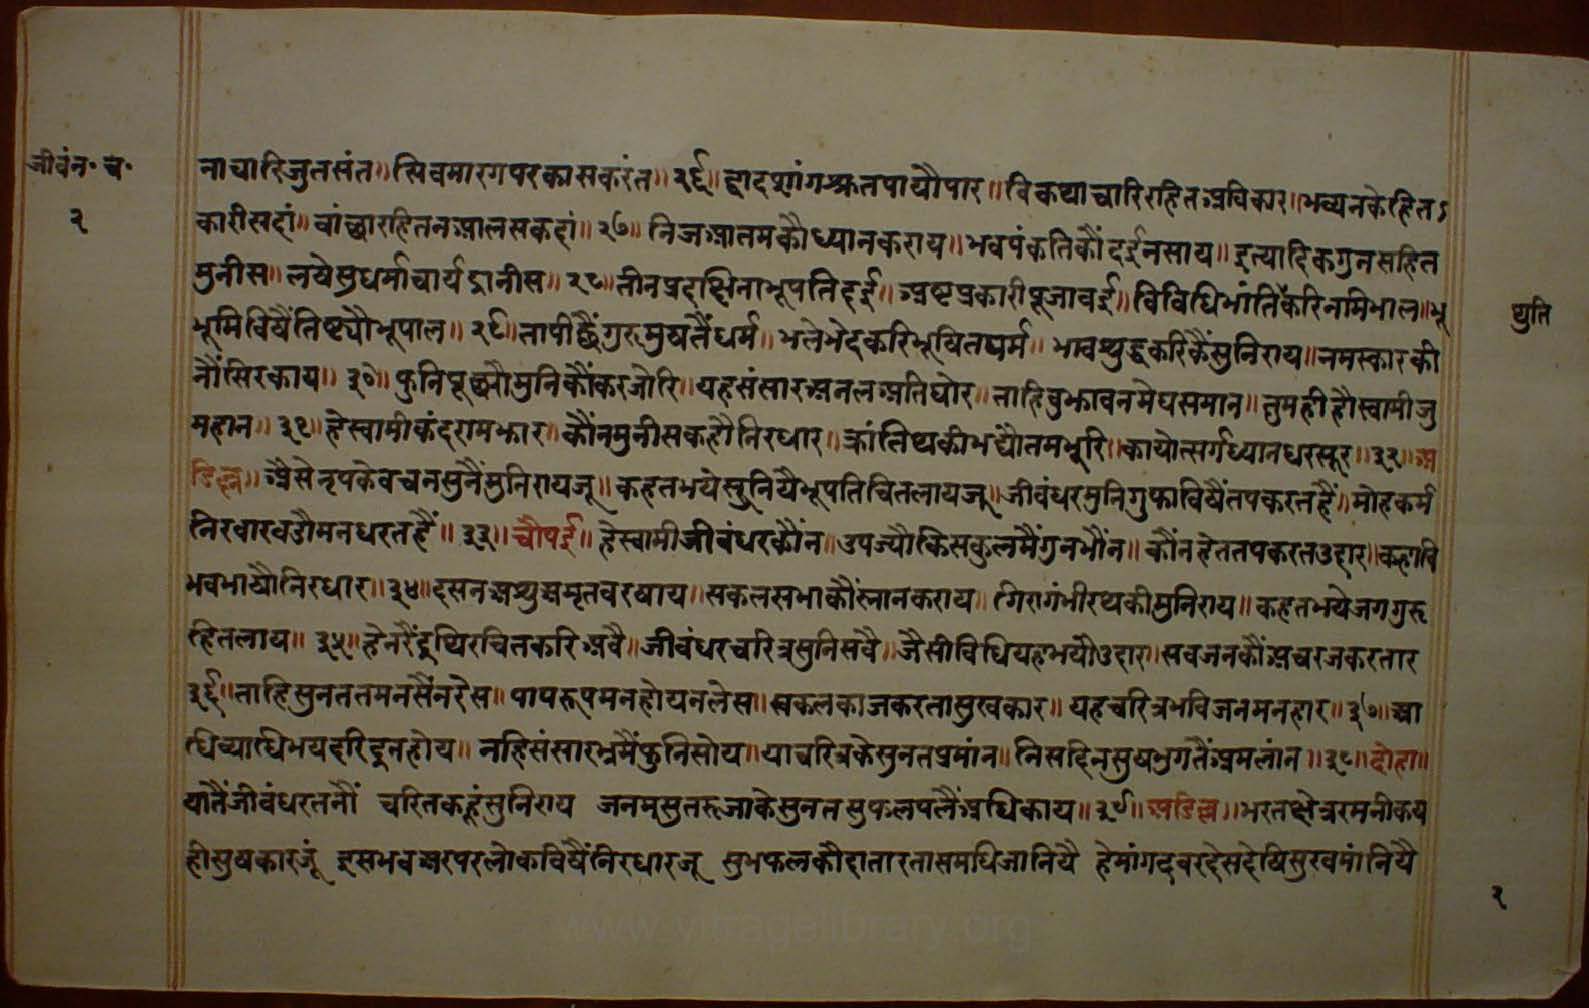 जीवंन॰ च॰
२
नाचारिजुतसंत॥ सिवमारगपरकासकरंत॥ २६॥ द्वादशांगश्रुतपायौपार॥ विकथाच्यारिरहितअविकार॥ भव्यनकेहित
कारीसदां॥ वांछारहितनआलसकहां॥ २७॥ निजआतमकौध्यानकराय॥ भवपंकतिकौंदईनसाय॥ इत्यादिकगुनसहित
मुनीस॥ लयेसुधर्माचार्यग्रनीस॥ २८॥ तीनप्रदछिनाभूपतिदई॥ अष्टप्रकारीपूजावई॥ विविधिभांतिकरिनामिभाल॥ भू
भूमिविषैंतिष्ट्यौभूपाल॥ २९॥ तापीछैंगुरुमुषतैंधर्म॥ भलेभेदकरिभूषितपर्म॥ भावश्युद्धकरिकैंसुनिराय॥ नमस्कारकी
थ्युति
नौंसिरकाय॥ ३०॥ फुनिपूछ्यौमुनिकौंकरजोरि॥ यहसंसारअनलअतिघोर॥ ताहिवुझावनमेघसमान॥ तुमहीहौस्वामीजु
महान॥ ३१॥ हेस्वामीकंदरामझार॥ कौंनमुनीसकहौनिरधार॥ क्रांतिथकीभद्यौतमभूरि॥ कायोत्सर्गध्यानधरसूर॥ ३२॥ अ
डिल्ल॥ अैसेनृपकेवचनसुनैंमुनिरायजू॥ कहतभयेसुनियैभूपतिचितलायजू॥ जीवंधरमुनिगुफाविषैंतपकरतहैं॥ मोहकर्म
निरवारवउौमनधरतहैं॥ ३३॥ चौपई॥ हेस्वामीजीवंधरकौंन॥ उपज्यौकिसकुलमैंगुनभौंन॥ कौंनहेततपकरतउदार॥ कहावि
भवभायौनिरधार॥ ३४॥ दसनअश्युअमृतवरषाय॥ सकलसभाकौंस्नानकराय॥ गिरागंभीरथकीमुनिराय॥ कहतभयेजगगुरु
हितलाय॥ ३५॥ हेनरैंद्रथिरचितकरिअवै॥ जीवंधरचरित्रसुनिसवै॥ जैसीविधियहभयौउदार॥ सवजनकौंअचरजकरतार
३६॥ ताहिसुनततमनसैंनरेस॥ पापरूपमनहोयनलेस॥ सकलकाजकरतासुखकार॥ यहचरित्रभविजनमनहार॥ ३७॥ आ
धिव्याधिभयहरिदुनहोय॥ नहिसंसारभ्रमैंफुनिसोय॥ याचरित्रकेसुनतप्रमांन॥ निसदिनसुषभुगतैंअमलांन॥ ३८॥ दोहा॥
यातैंजीवंधरतनौं चरितकहूंसुनिराय जनममृत्तरुजाकेसुनत सुफलपलैंअधिकाय॥ ३९॥ अडिल्ल॥ भरतछेत्ररमनीकय
होसुषकारजूं इसभवअरपरलोकविषैंनिरधारजू सुभफलकौदातारतासमधिजानियै हेमांगदवरदेसदेषिसुरवमांनियै
२
www.vitragelibrary.org